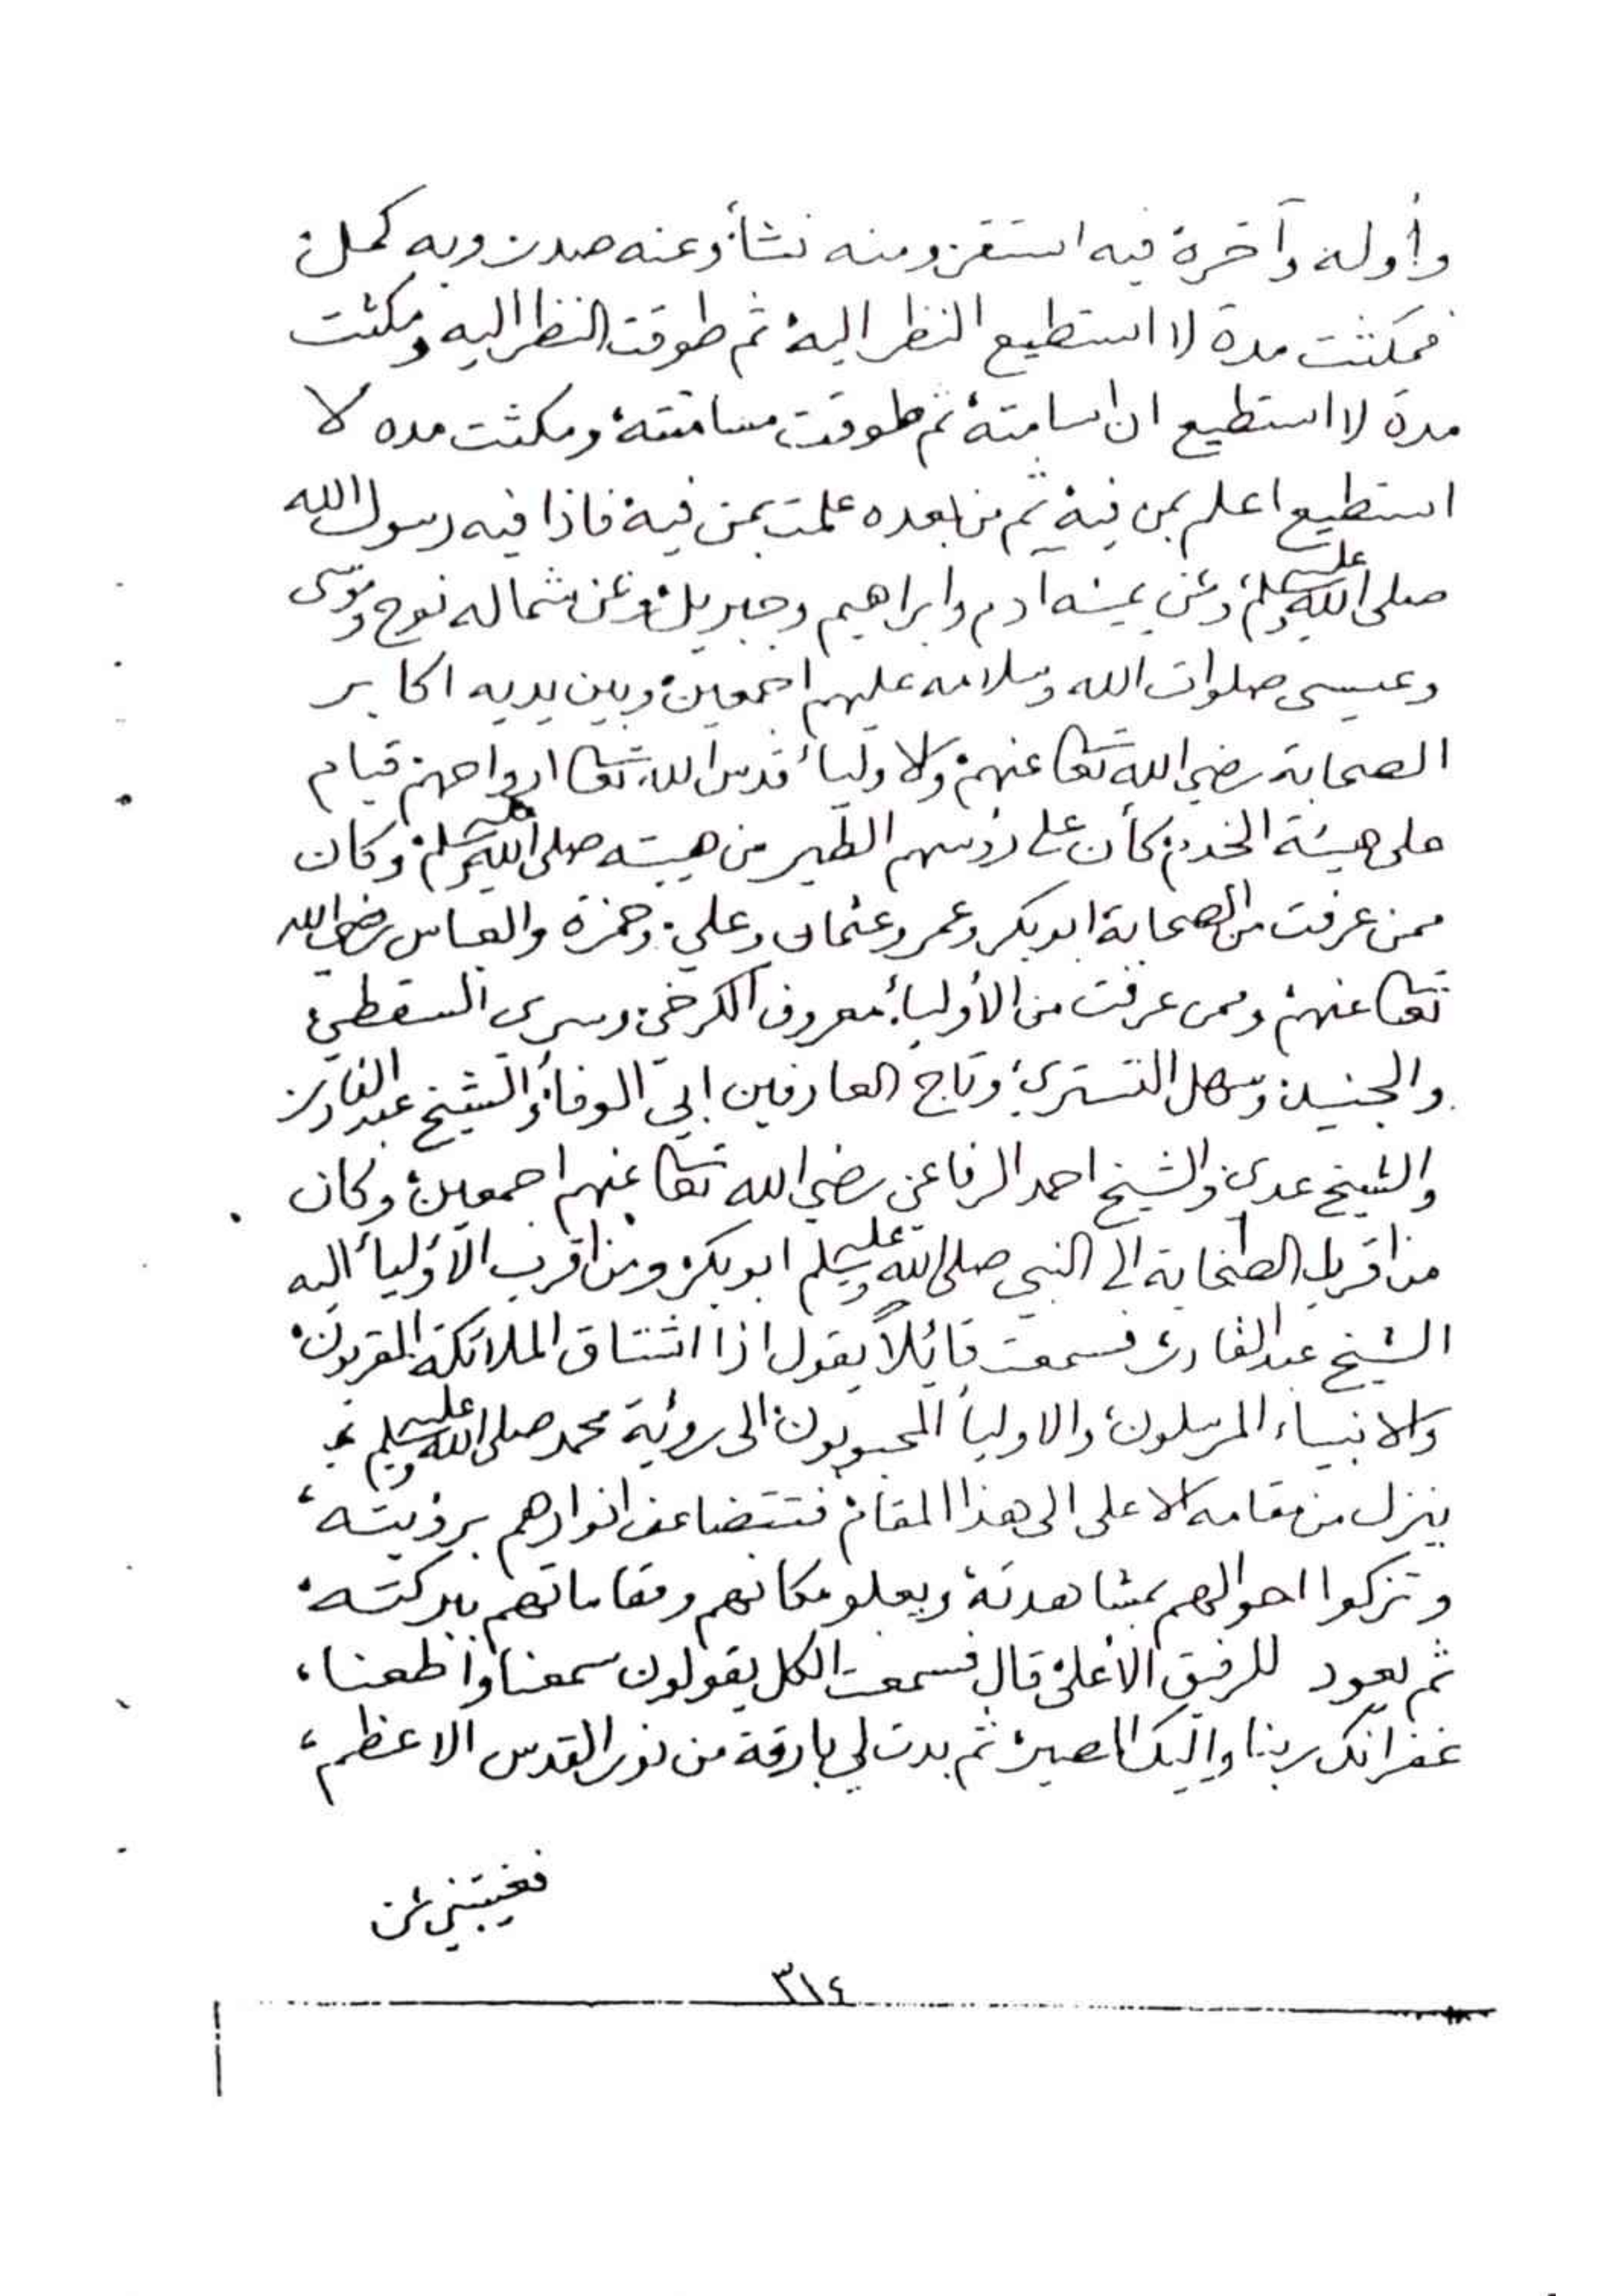 وأوله وآخره فيه استقر ومنه نشأ وعنه صدر وبه كمل
فمكثت مدة لا استطيع النظر اليه ثم طوقت النظر اليه ومكثت
مدة لا استطيع ان اسامته ثم طوقت مسامتته ومكثت مده لا
استطيع اعلم بمن فيه ثم من بعده علمت بمن فيه فاذا فيه رسول الله
صلى الله عليه وسلم وعن يمينه آدم وابراهيم وجبريل وعن شماله نوح وموسى
وعيسى صلوات الله وسلامه عليهم اجمعين وبين يديه اكابر
الصحابة رضي الله تعا عنهم والاوليأ قدس الله تعا ارواحهم قيام
على هيئة الخدم كأن على رؤسهم الطير من هيبته صلى الله عليه وسلم وكان
ممن عرفت من الصحابة ابو بكر وعمر وعثمان وعلي وحمزة والعباس رضي الله
تعا عنهم وممن عرفت من الأوليأ معروف الكرخي وسرى السقطي
والجنيد وسهل التستري وتاج العارفين ابي الوفأ والشيخ عبد القادر
والشيخ عدى والشيخ احمد الرفاعى رضي الله تعا عنهم اجمعين وكان
من اقرب الصحابة الى النبي صلى الله عليه وسلم ابو بكر ومن اقرب الأوليأ اليه
الشيخ عبد القادر فسمعت قائلاً يقول اذا اشتاق الملائكة المقربون
والانبياء المرسلون والاوليأ المحبوبون الى روئية محمد صلى الله عليه وسلم
ينزل من مقامه الاعلى الى هذا المقام فتتضاعف انوارهم برؤيته،
وتزكوا احوالهم بمشاهدته ويعلو مكانهم ومقاماتهم ببركته
ثم يعود للرفيق الأعلى قال فسمعت الكل يقولون سمعنا واطعنا،
غفرانك ربنا واليك المصير ثم بدت لي بارقة من نور القدس الاعظم،
فغيبتني عن
٣١٤